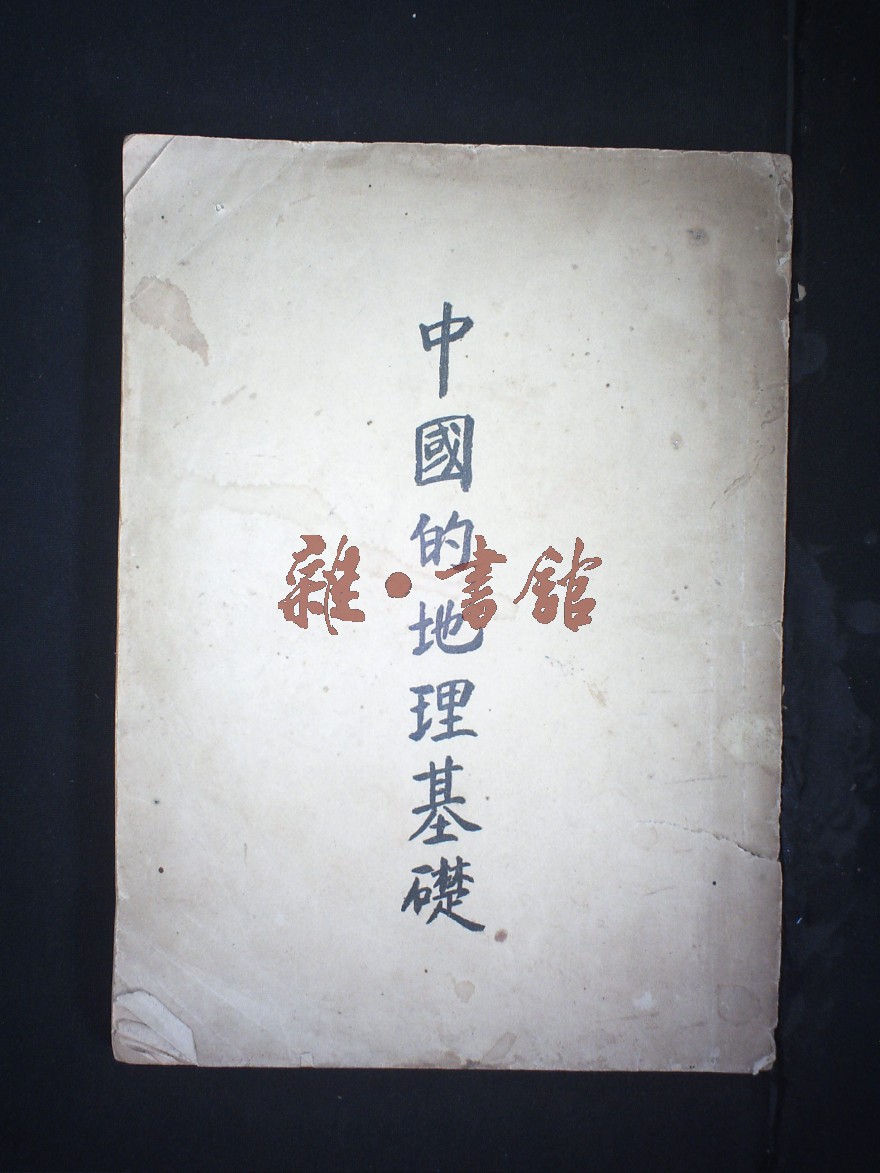 中國的地理基礎
雜·書舘